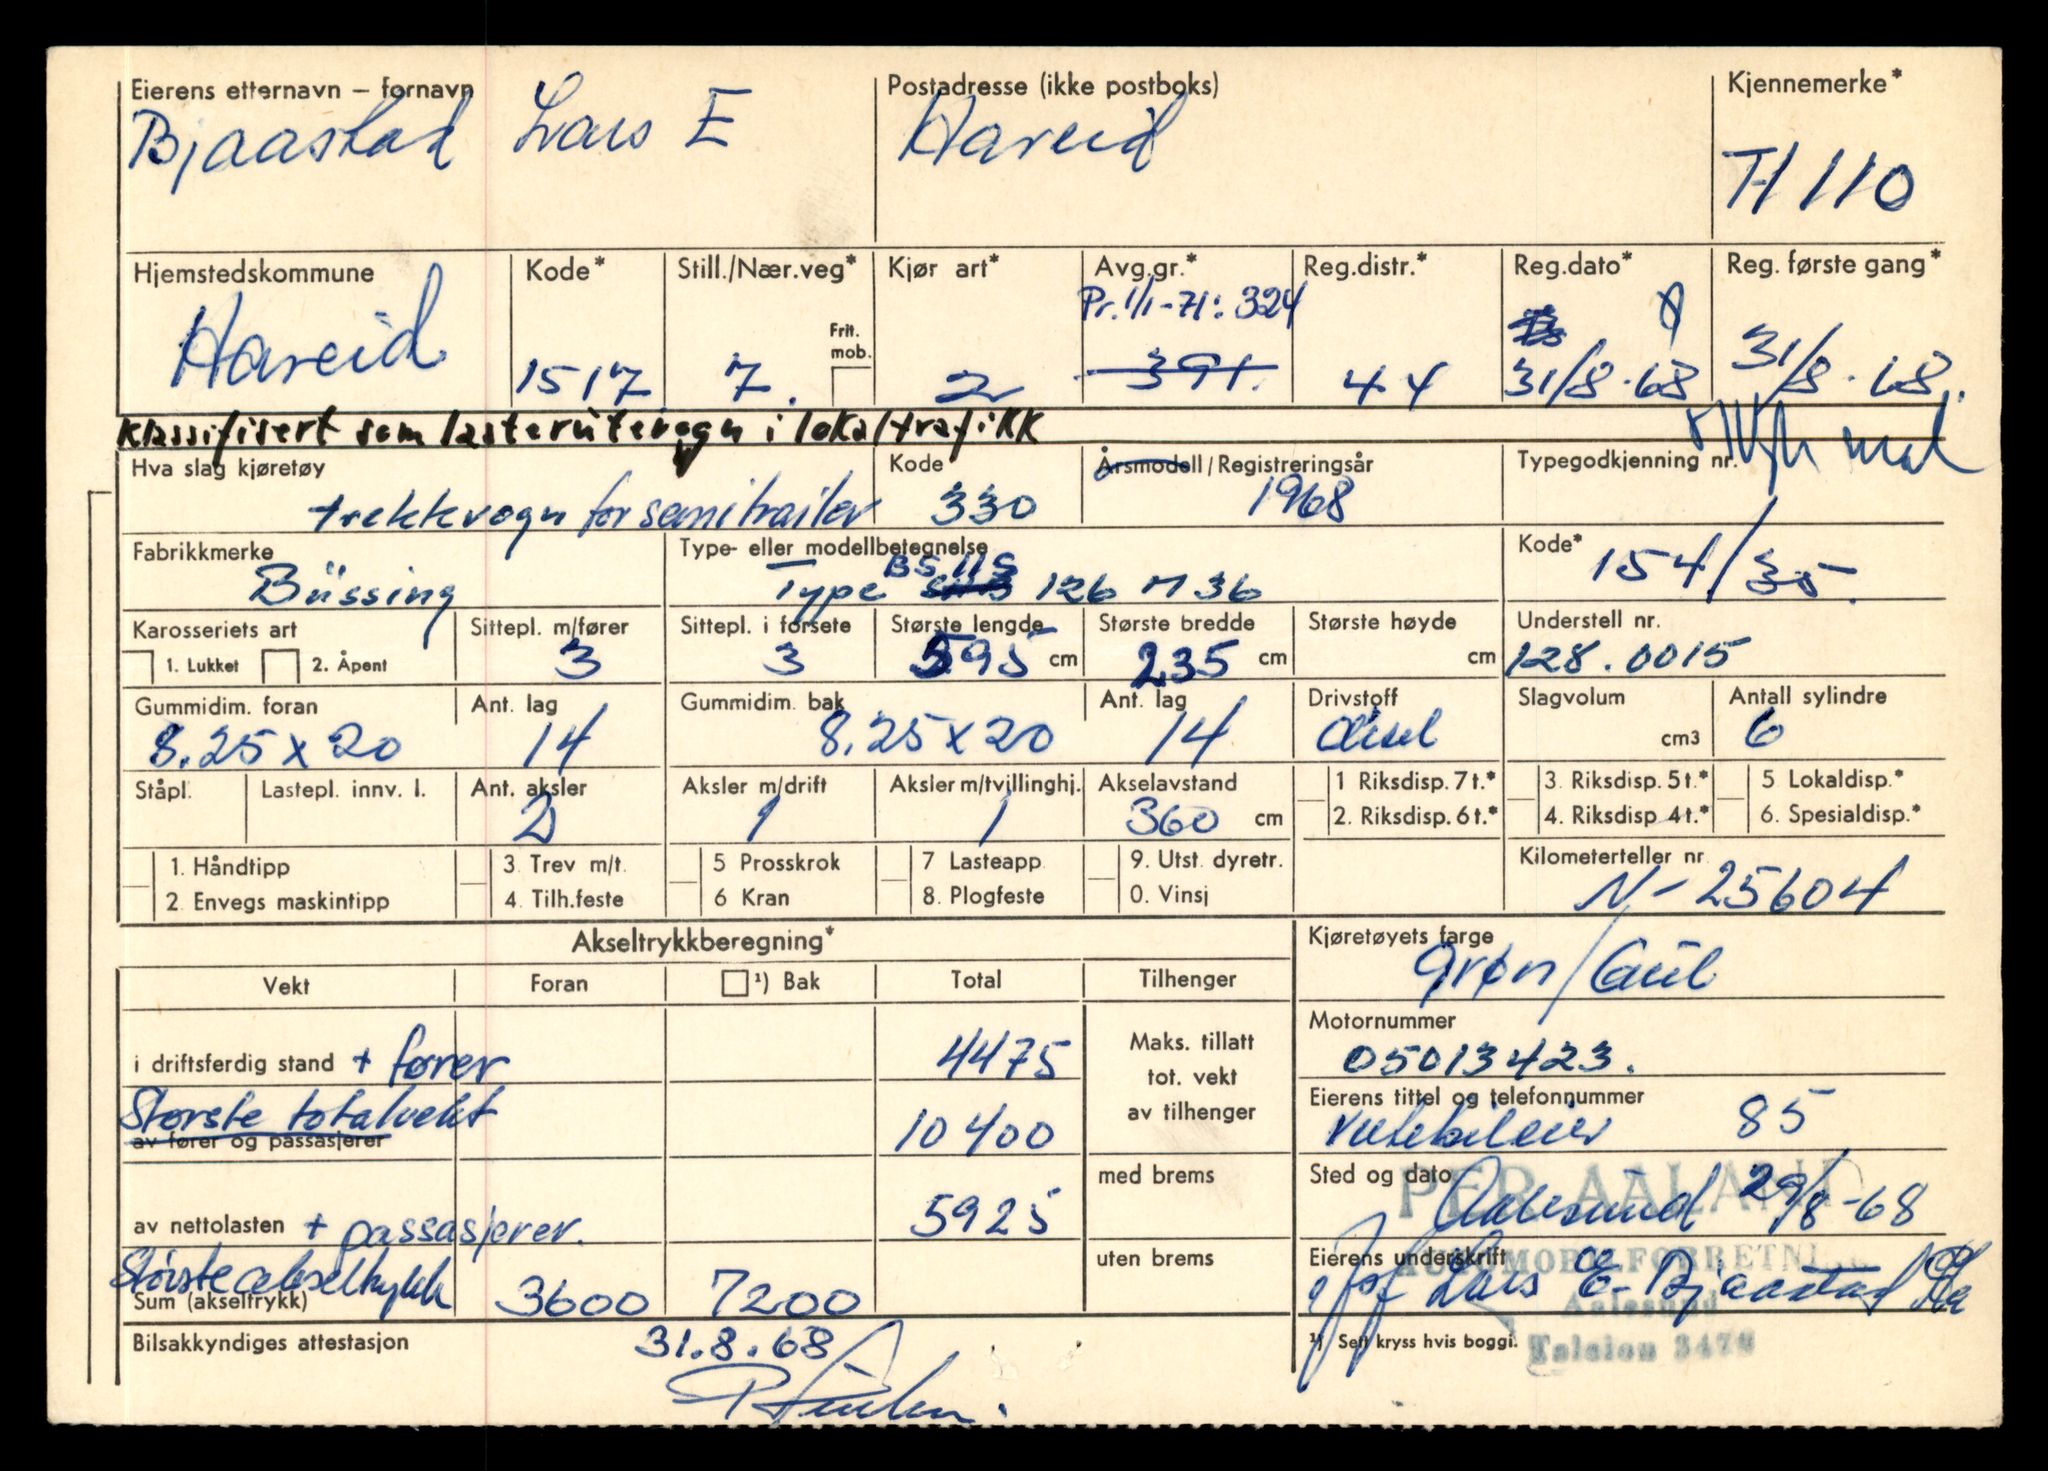 Eierens etternavn – fornavn Postadresse (ikke postboks) Kjennemerke*
Bjaastad Lars E Hareid T-1110
Hjemstedskommune Kode* Still./Nær.veg* Kjør art* Avg.gr.* Reg.distr.* Reg.dato* Reg. første gang*
Pr. 1/1-71: 324
Frit. mob.
Hareid 1517 7. 2 391. 44 31/8-68 31/8-68.
Klassifisert som lasterutevogn i lokaltrafikk
Hva slag kjøretøy Kode Årsmodell/Registreringsår Typegodkjenning nr.
trekkvogn for semitrailer 330 1968
Fabrikkmerke Type- eller modellbetegnelse Kode*
Büssing Type BS 11S 126 M 36 154/35.
Karosseriets art Sittepl. m/fører Sittepl. i forsete Største lengde Største bredde Største høyde Understell nr.
1. Lukket 2. Åpent 3 3 595 cm 235 cm cm 128.0015
Gummidim. foran Ant. lag Gummidim. bak Ant. lag Drivstoff Slagvolum Antall sylindre
8.25 x 20 14 8.25 x 20 14 diesel cm3 6
Ståpl. Lastepl. innv. l. Ant. aksler Aksler m/drift Aksler m/tvillinghj. Akselavstand 1 Riksdisp. 7 t.* 3. Riksdisp. 5 t.* 5 Lokaldisp.*
2 1 1 360 cm 2. Riksdisp. 6 t.* 4. Riksdisp 4 t.* 6. Spesialdisp.*
1. Håndtipp 3. Trev m/t. 5 Prosskrok 7 Lasteapp. 9. Utst. dyretr. Kilometerteller nr.
2 Envegs maskintipp 4. Tilh.feste 6 Kran 8. Plogfeste 0. Vinsj N-25604
Akseltrykkberegning* Kjøretøyets farge
Vekt Foran ¹) Bak Total Tilhenger grøn/Gul
Motornummer
i driftsferdig stand + fører 4475 Maks. tillatt tot. vekt av tilhenger 05013423.
Eierens tittel og telefonnummer
Største totalvekt 10400 rutebileier 85
av fører og passasjerer
med brems Sted og dato
PER AALAND
av nettolasten + passasjerer. 5925 Aalesund 29/8-68
uten brems Eierens underskrift
AUTOMOBILFORRETNING
Største akseltrykk
Sum (akseltrykk) 3600 7200 Lars E. Bjaastad
Aalesund
Bilsakkyndiges attestasjon 31.8.68 ¹) Sett kryss hvis boggi.
Telefon 3479